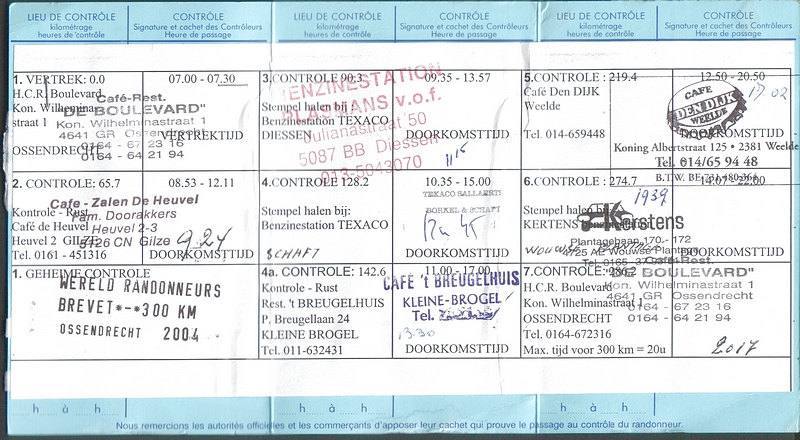 LIEU DE CONTRÔLE
kilométrage
heures de contrôle
CONTRÔLE
Signature et cachet des Contrôleurs
Heure de passage
LIEU DE CONTRÔLE
kilométrage
heures de contrôle
CONTRÔLE
Signature et cachet des Contrôleurs
Heure de passage
LIEU DE CONTRÔLE
kilométrage
heures de contrôle
CONTRÔLE
Signature et cachet des Contrôleurs
Heure de passage
1. VERTREK: 0.0
H.C.R. Boulevard
Kon. Wilhelmina-
straat 1
OSSENDRECHT
07.00 - 07.30
VERTREKTIJD
Café-Rest.
DE BOULEVARD"
Kon. Wilhelminastraat 1
4641 GR Ossendrecht
0164 - 67 23 16
0164 - 64 21 94
3.CONTROLE 90.3
Stempel halen bij
Benzinestation TEXACO
DIESSEN
09.35 - 13.57
DOORKOMSTTIJD
BENZINESTATION
v.o.f.
Julianastraat 50
5087 BB Diessen
013-5043070
1115
5.CONTROLE : 219.4
Café Den DIJK
Weelde
Tel. 014-659448
12.50 - 20.50
CAFE
DEN DIJK
WEELDE
17 02
Koning Albertstraat 125 • 2381 Weelde
Tel. 014/65 94 48
B.T.W. BE 731.480.364
2. CONTROLE: 65.7
Kontrole - Rust
Café de Heuvel
Heuvel 2 GILZE
Tel. 0161 - 451316
08.53 - 12.11
DOORKOMSTTIJD
Cafe - Zalen De Heuvel
Fam. Doorakkers
Heuvel 2-3
5126 CN Gilze
924
4.CONTROLE 128.2
Stempel halen bij:
Benzinestation TEXACO
SCHAFT
10.35 - 15.00
DOORKOMSTTIJD
TEXACO SALLAERTS
BORKEL & SCHAFT
6.CONTROLE : 274.7
Stempel halen bij
KERTENS
14.07 - 22.00
DOORKOMSTTIJD
1939
Kerstens
Plantagebaan 170 - 172
4725 AE Wouwse Plantage
1. GEHEIME CONTROLE
WERELD RANDONNEURS
BREVET*-*300 KM
OSSENDRECHT 2004
4a. CONTROLE: 142.6
Kontrole - Rust
Rest. 't BREUGELHUIS
P. Breugellaan 24
KLEINE BROGEL
Tel. 011-632431
11.00 - 17.00
DOORKOMSTTIJD
CAFE 't BREUGELHUIS
KLEINE-BROGEL
Tel.
13.30
7.CONTROLE
H.C.R. Boulevard
Kon. Wilhelminastraat 1
OSSENDRECHT
Tel. 0164-672316
Max. tijd voor 300 km = 20u
Café-Rest.
DE BOULEVARD"
Kon. Wilhelminastraat 1
4641 GR Ossendrecht
0164 - 67 23 16
0164 - 64 21 94
2017
h à h
h à h
h à h
Nous remercions les autorités officielles et les commerçants d'apposer leur cachet qui prouve le passage au contrôle du randonneur.